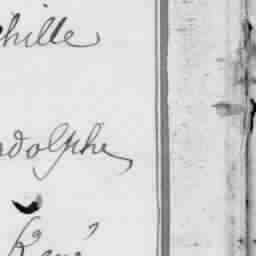 hille
dolphe
René